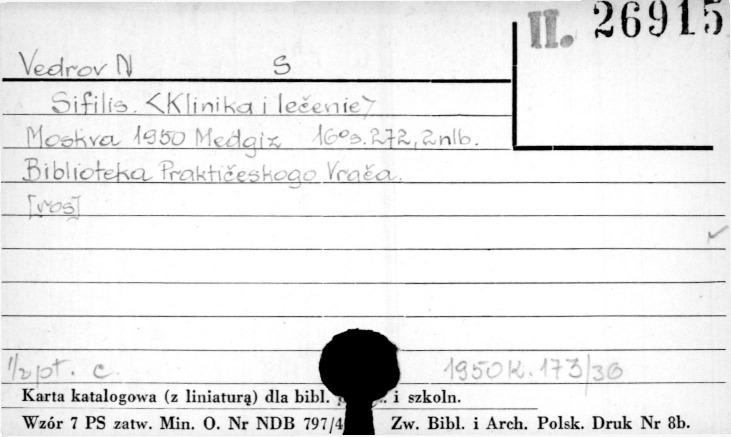 II. 26915
Vedrov N S
Sifilis. <Klinika i lečenie>
Moskva 1950 Medgiz 16° s. 272, 2nlb.
Biblioteka Praktičeskogo Vrača.
[ros]
1/2 pt. c. 1950 K. 173/36
Karta katalogowa (z liniaturą) dla bibl. i szkoln.
Wzór 7 PS zatw. Min. O. Nr NDB 797/4 Zw. Bibl. i Arch. Polsk. Druk Nr 8b.